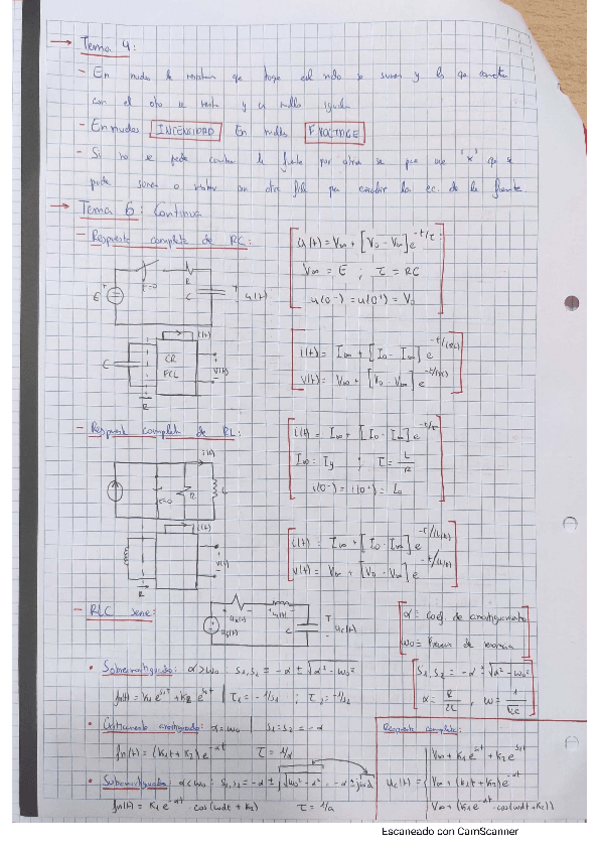 → Tema 4:
- En nudos la que nudo se suman y los que
con el otro se resta y en mallas igual
- En nudos INTENSIDAD En mallas VOLTAGE
- Si no se puede la fuente por otra se que una 'x' que se
puede sumar o restar con otra fila para la ec. de la fuente
→ Tema 6: Continua
- Respuesta completa de RC:
u(t) = V∞ + [V0 - V∞] e^-t/τ
V∞ = E ; τ = RC
u(0-) = u(0+) = V0
E
t=0
R
C
u(t)
i(t)
C
CR
FCL
V(t)
R
i(t) = I∞ + [I0 - I∞] e^-t/(RC)
V(t) = V∞ + [V0 - V∞] e^-t/(RC)
- Respuesta completa de RL:
i(t) = I∞ + [I0 - I∞] e^-t/τ
I∞ = Ig ; τ = L/R
i(0-) = i(0+) = I0
i(t)
t=0
R
L
i(t)
V(t)
R
i(t) = I∞ + [I0 - I∞] e^-t/(L/R)
V(t) = V∞ + [V0 - V∞] e^-t/(L/R)
- RLC serie:
C
uc(t)
α = coef. de amortiguamiento
ω0 = de
S1, S2 = -α ± √α²-ω0²
α = R/2L , ω = 1/√LC
• Sobreamortiguado: α>ω0 S1, S2 = -α ± √α²-ω0²
fn(t) = K1 e^S1t + K2 e^S2t | τ1 = -1/S1 ; τ2 = -1/S2
• Críticamente amortiguado: α = ω0 S1 = S2 = -α
fn(t) = (K1t + K2) e^-αt τ = 1/α
• Subamortiguado: α<ω0 : S1, S2 = -α ± j√ω0²-α² = -α ± jωd
fn(t) = K1 e^-αt · cos(ωdt + K2) τ = 1/α
Respuesta completa:
uc(t) =
V∞ + K1 e^S1t + K2 e^S2t
V∞ + (K1t + K2) e^-αt
V∞ + (K1 e^-αt · cos(ωdt + K2))
Escaneado con CamScanner